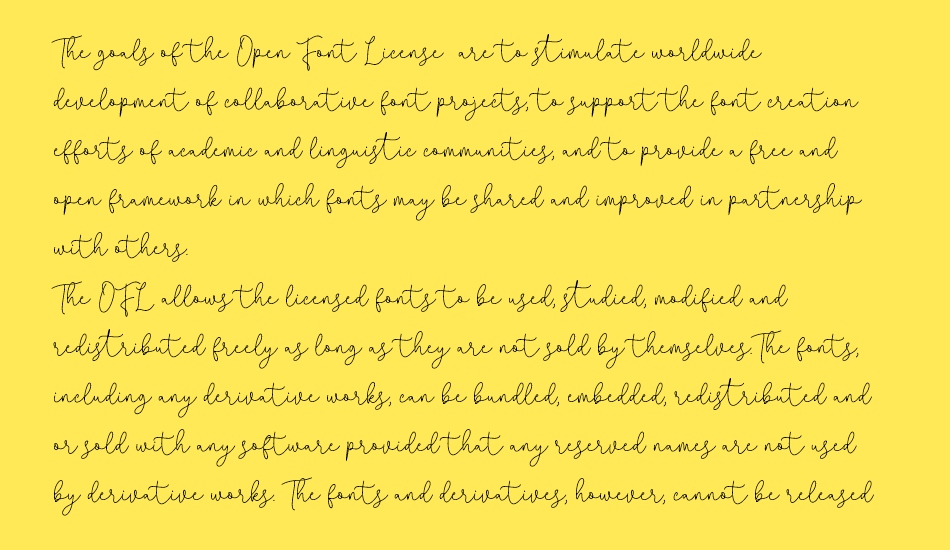 The goals of the Open Font License are to stimulate worldwide
development of collaborative font projects, to support the font creation
efforts of academic and linguistic communities, and to provide a free and
open framework in which fonts may be shared and improved in partnership
with others.
The OFL allows the licensed fonts to be used, studied, modified and
redistributed freely as long as they are not sold by themselves. The fonts,
including any derivative works, can be bundled, embedded, redistributed and
or sold with any software provided that any reserved names are not used
by derivative works. The fonts and derivatives, however, cannot be released